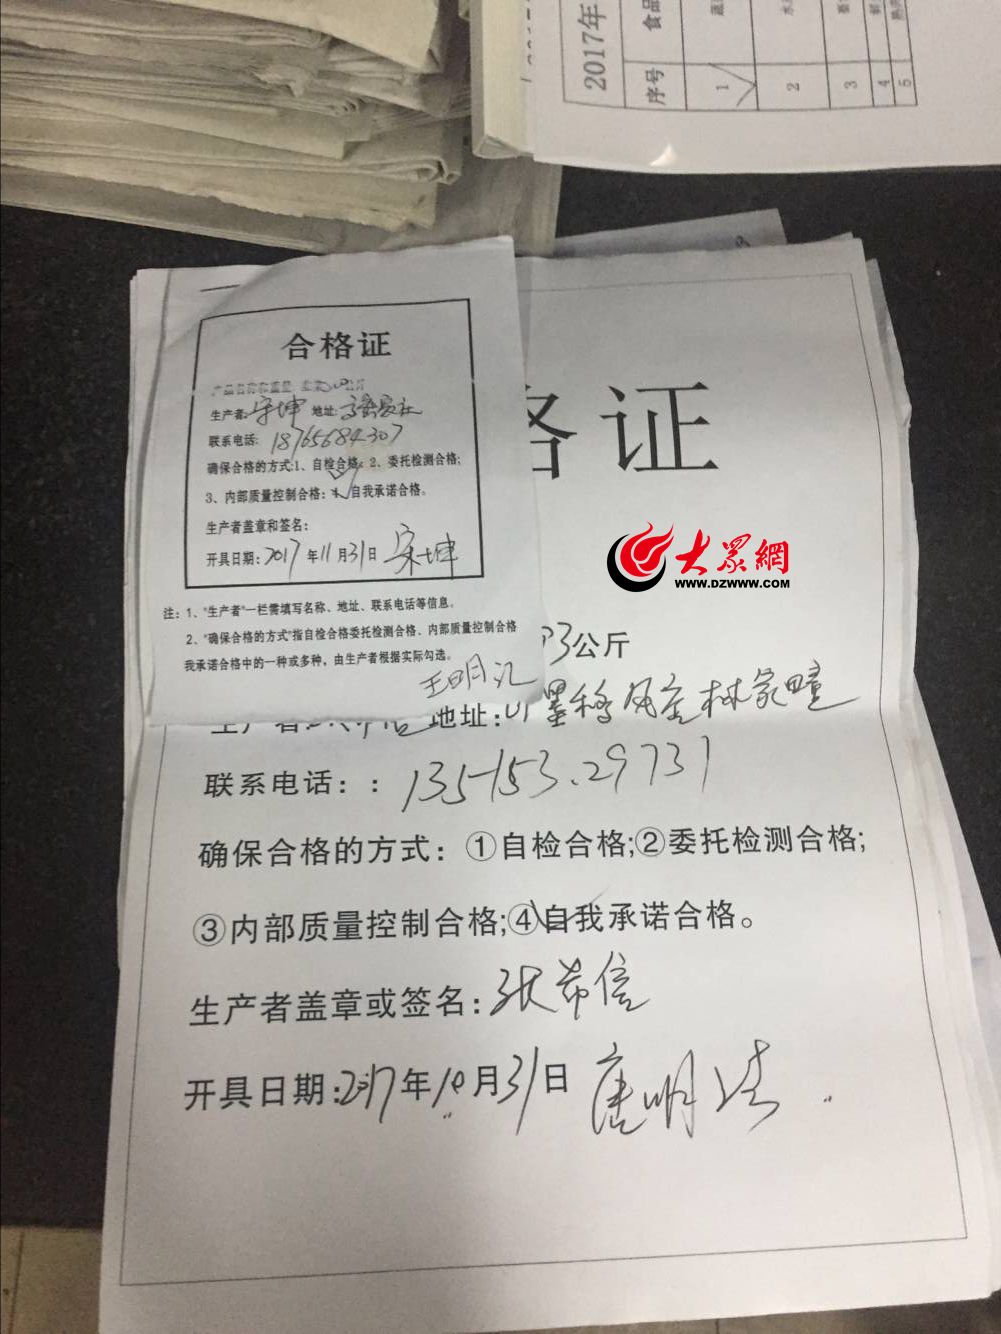 2017年
食品
序号
1
2
3
4
5
合格证
产品名称和重量
生产者:宋坤 地址:
联系电话: 18765684307
确保合格的方式:1、自检合格; 2、委托检测合格;
3、内部质量控制合格; 4、自我承诺合格。
生产者盖章和签名:
开具日期: 2017 年 11 月 31 日 宋坤
注: 1、"生产者"一栏需填写名称、地址、联系电话等信息。
2、"确保合格的方式"指自检合格委托检测合格、内部质量控制合格
我承诺合格中的一种或多种，由生产者根据实际勾选。
王明汇
格证
大眾網
WWW.DZWWW.COM
公斤
生产者: 地址: 林家疃
联系电话: : 135153.29731
确保合格的方式: ①自检合格;②委托检测合格;
③内部质量控制合格;④自我承诺合格。
生产者盖章或签名: 张希信
开具日期: 2017年10月31日 唐明